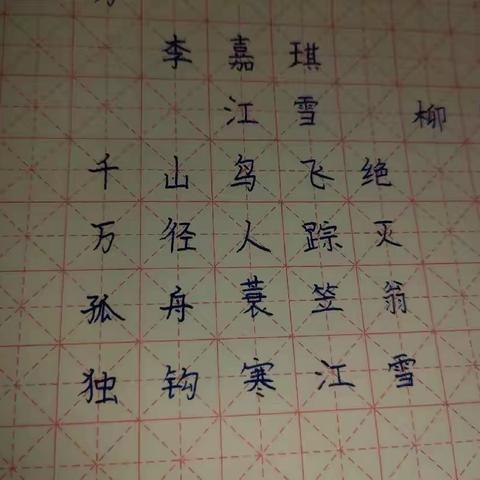 李嘉琪
江雪 柳
千山鸟飞绝
万径人踪灭
孤舟蓑笠翁
独钩寒江雪